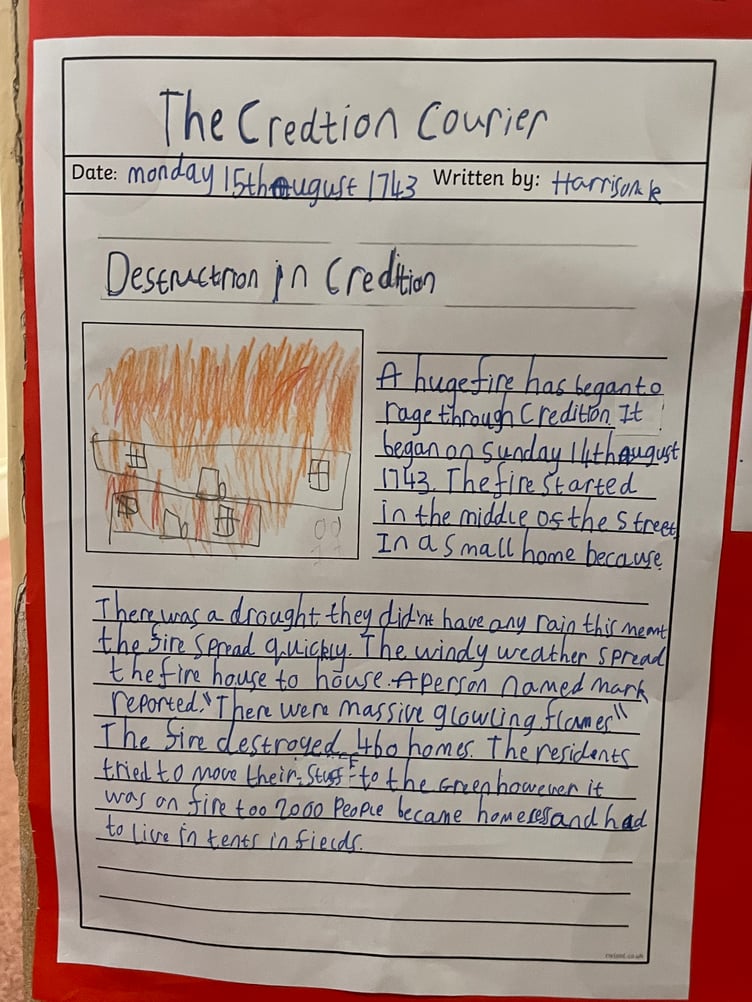 The Credtion Courier
Date: monday 15th august 1743 Written by: Harrison k
Destruction in Credition
A huge fire has began to
rage through Credition. It
began on Sunday 14th august
1743. The fire Started
in the middle of the Street
In a small home because
There was a drought they didn't have any rain this meant
the fire spread quickly. The windy weather spread
the fire house to house. A person named mark
reported, "There were massive glowling flames"
The fire destroyed 460 homes. The residents
tried to move their stuff to the Green however it
was on fire too 2000 People became homeless and had
to live in tents in fields.
twinkl.co.uk